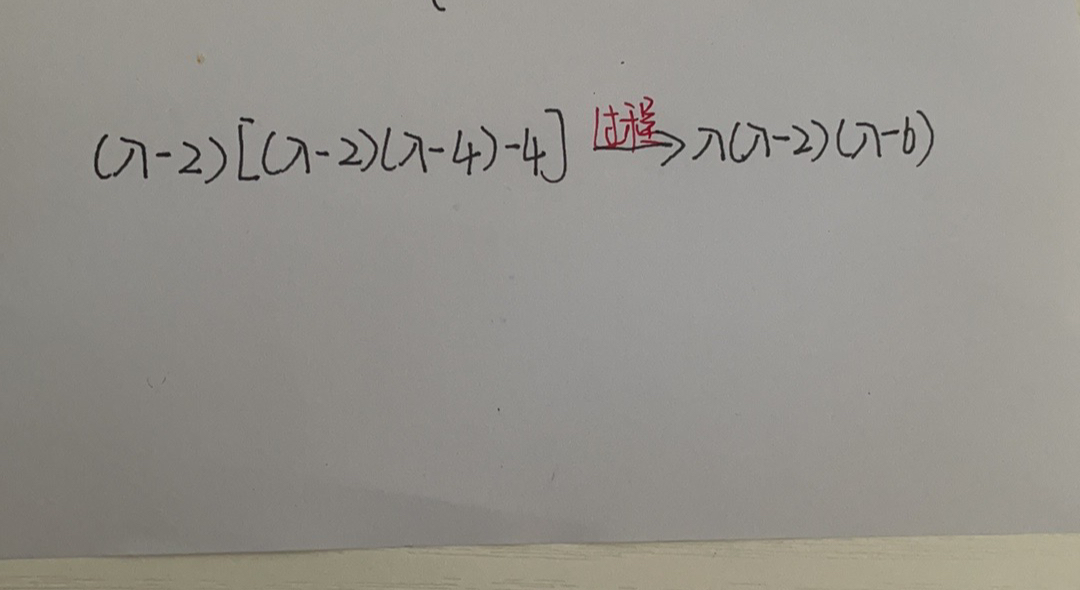 (λ-2)[(λ-2)(λ-4)-4] 过程→ λ(λ-2)(λ-6)